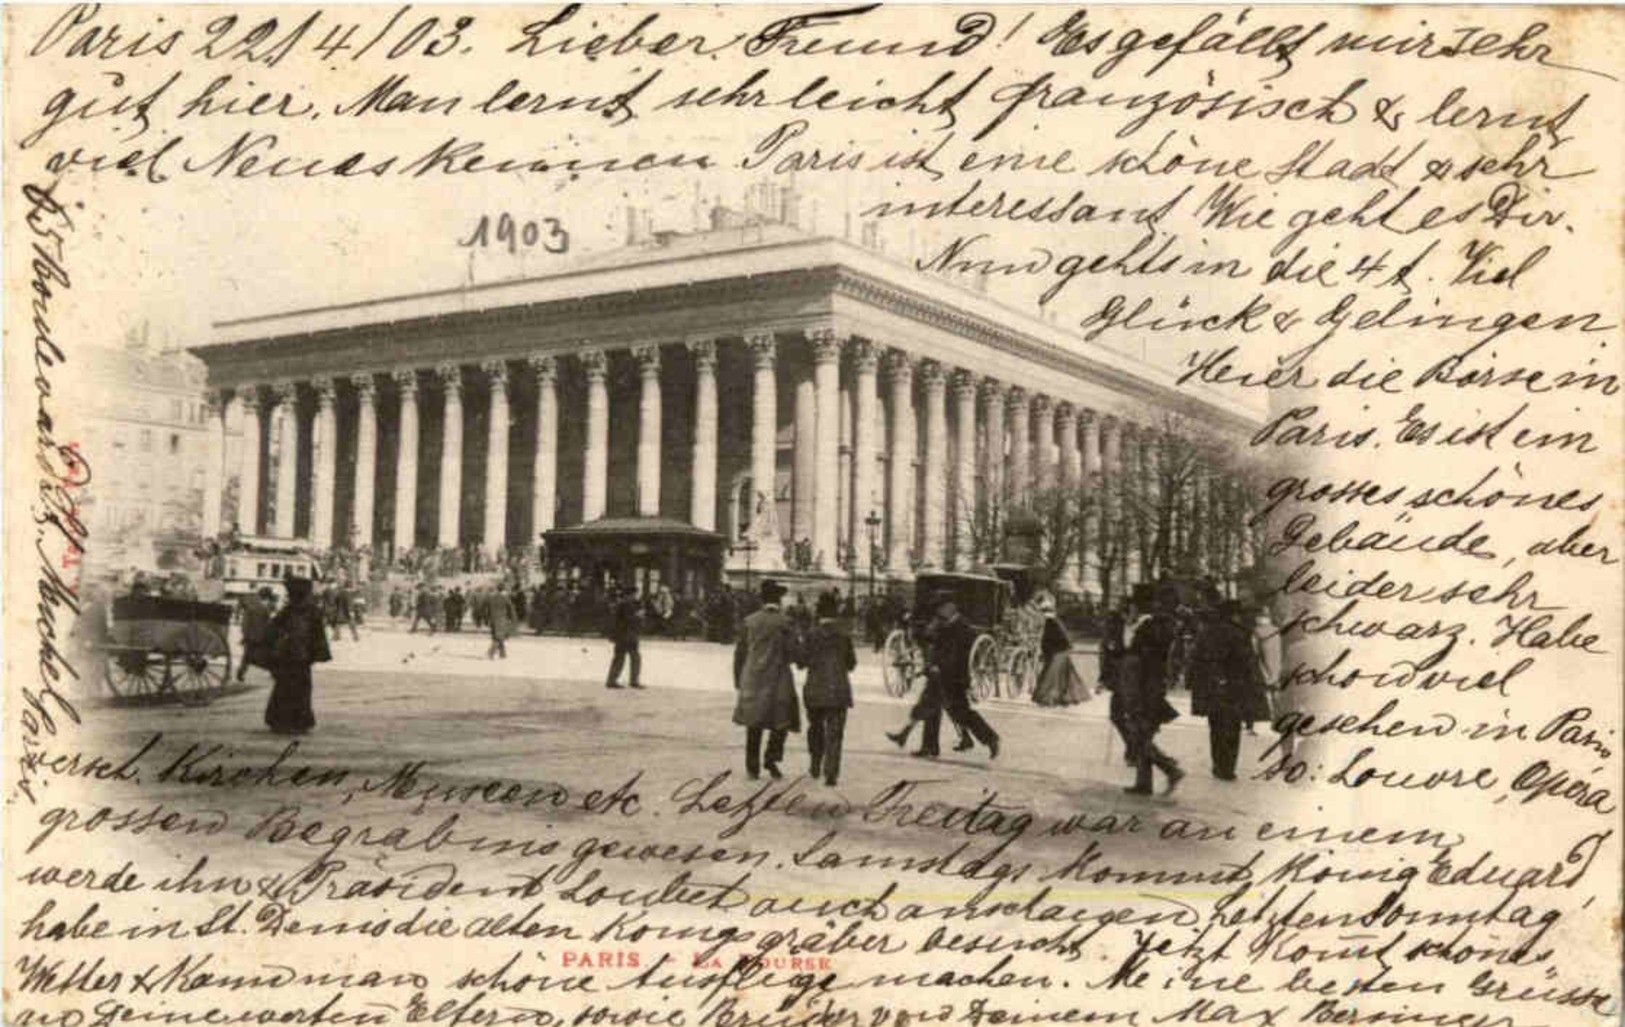 Paris 22/4/03. Lieber Freund! Es gefällt mir sehr
gut hier. Man lernt sehr leicht französisch & lernt
viel Neues kennen Paris ist eine schöne Stadt & sehr
interessant Wie geht es Dir.
Nun gehts in die 4t. Viel
Glück & Gelingen.
Heier die Börse in
Paris. Es ist ein
grosses schönes
Gebäude, aber
leider sehr
schwarz. Habe
schon viel
gesehen in Paris
so: Louvre, Opéra
versch. Kirchen, Museen etc. Letzten Freitag war an einem
grossen Begräbnis gewesen. Samstags kommt König Eduard,
werde ihn & Präsident Loubet auch anschauen Letzten Sonntag
habe in St. Denis die alten Königsgräber besucht. Jetzt komt schönes
Wetter & kann man schöne Ausflüge machen. Meine besten Grüsse
Deine werten Eltern, sowie Brüder von Deinem Max
65 Boulevard Michel
Paris
1903
PARIS - LA BOURSE